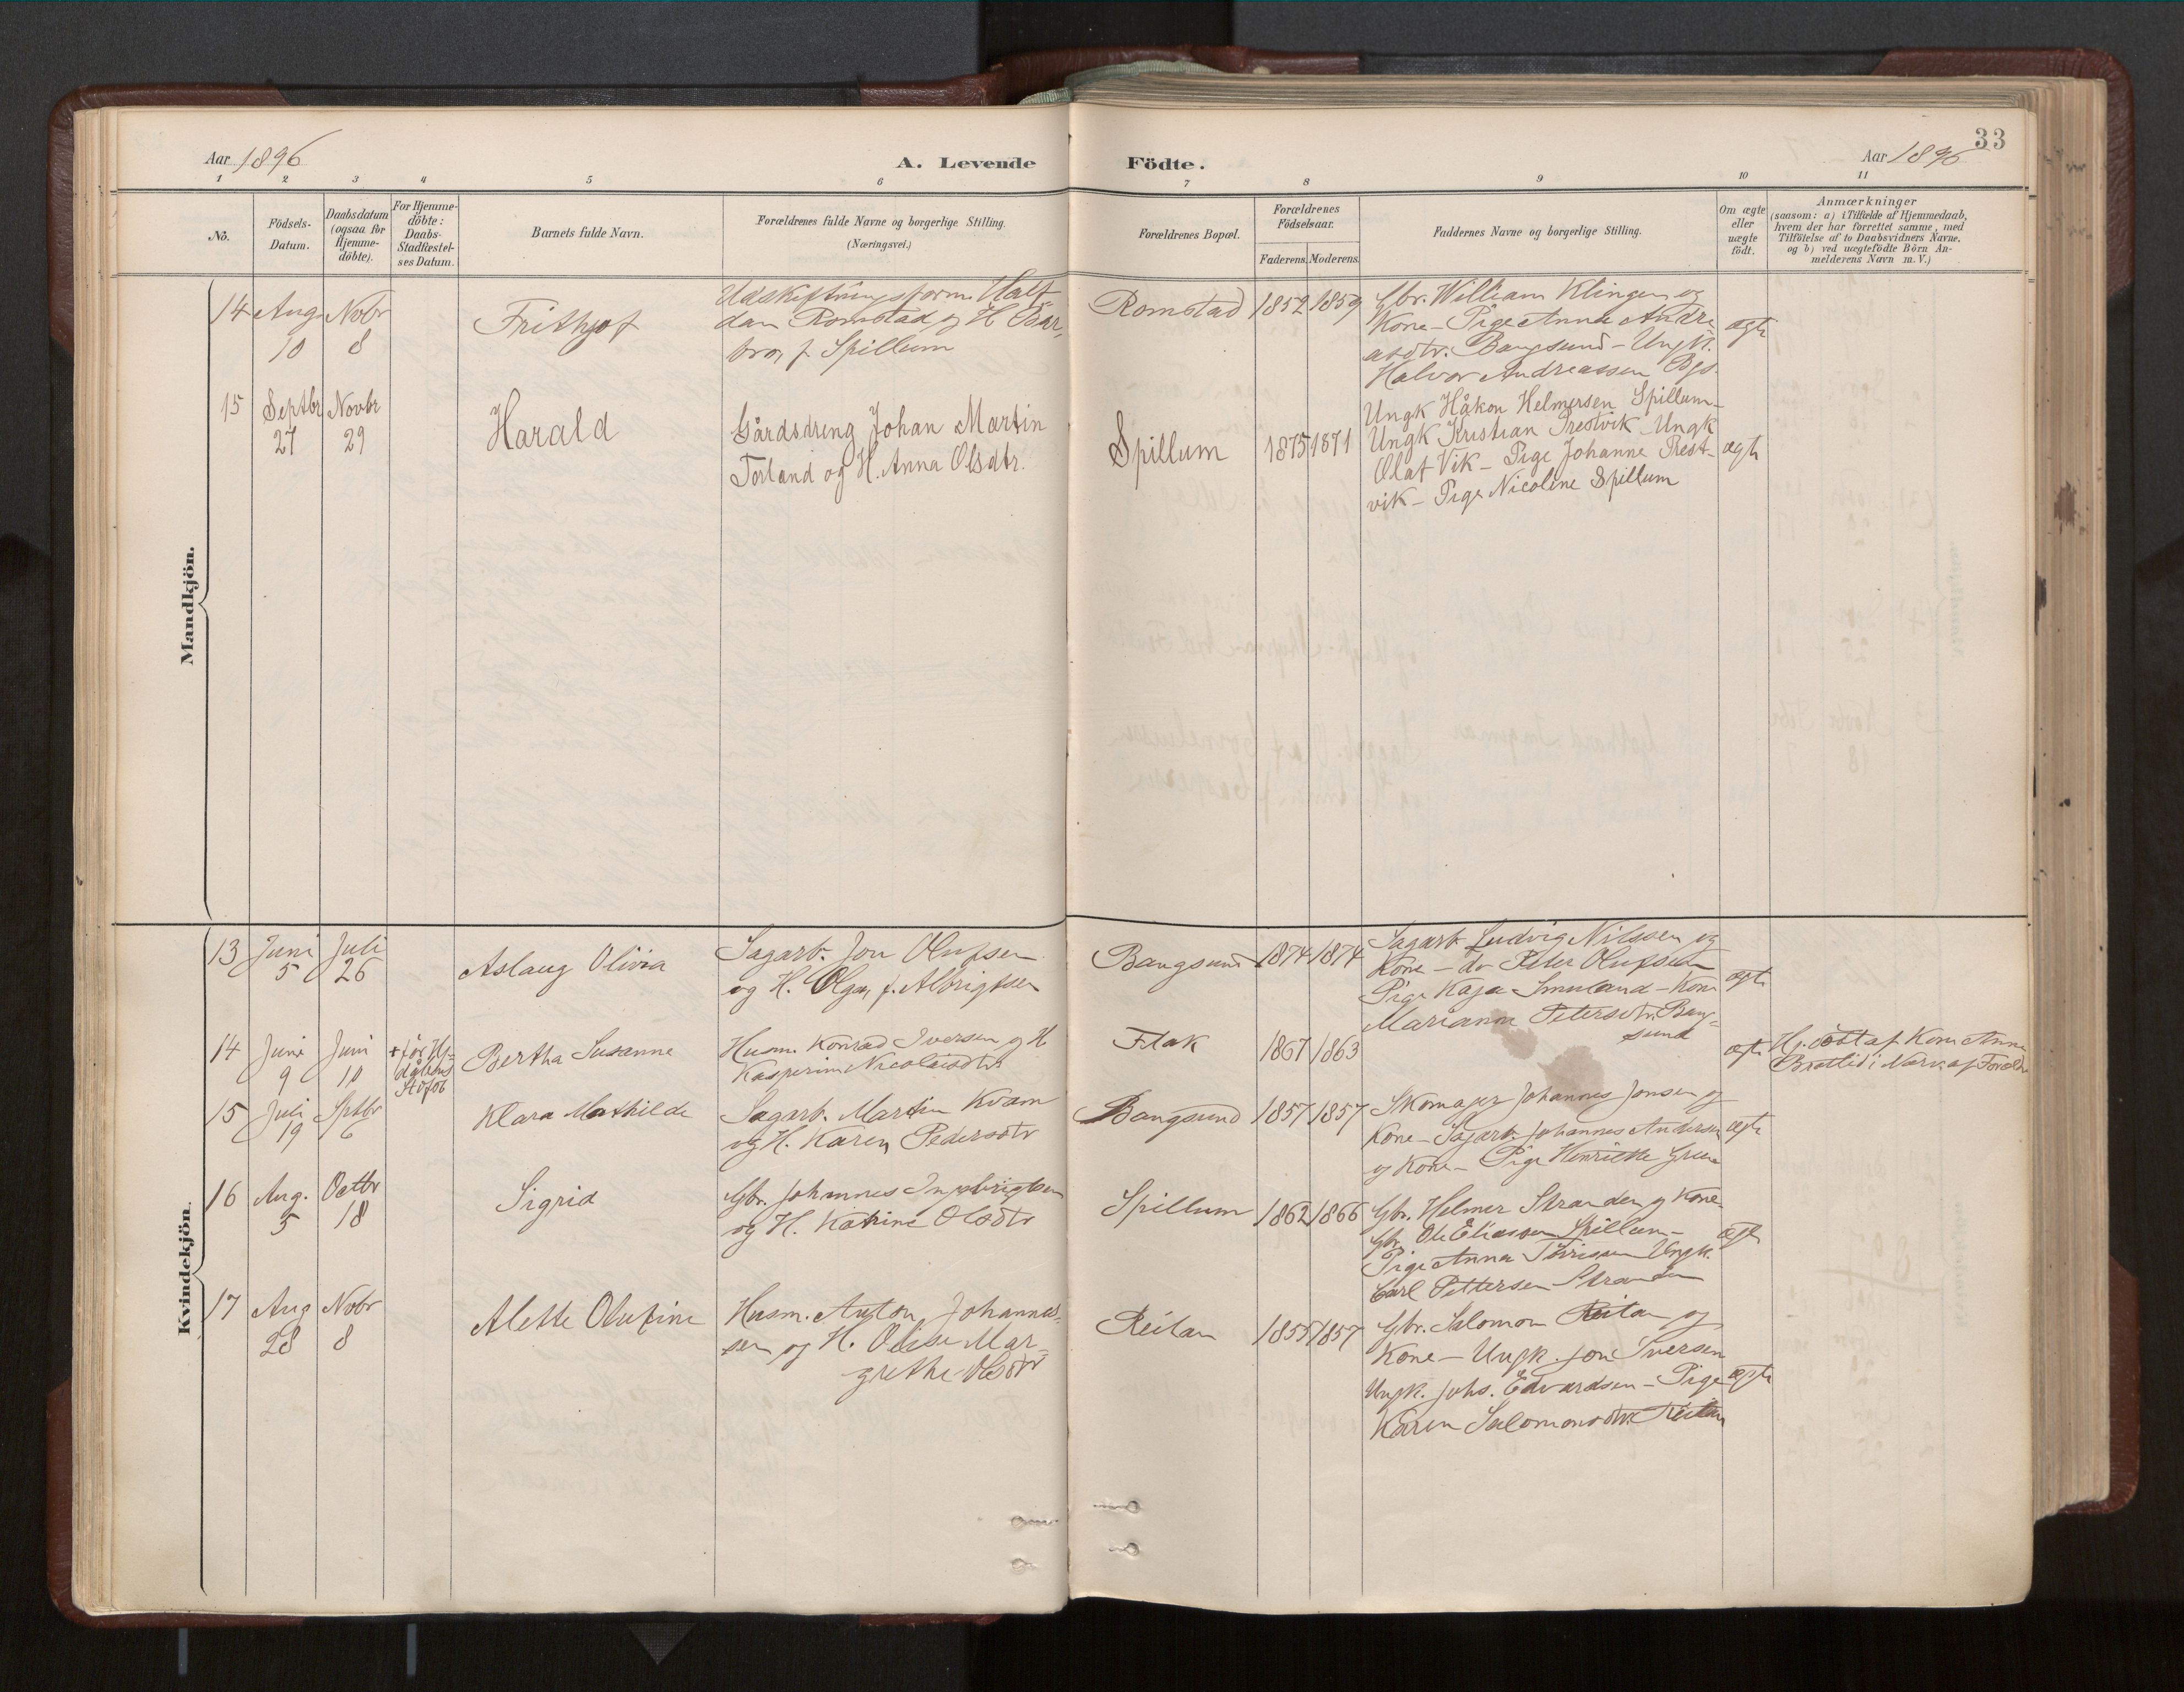 33
Aar 1896
A. Levende
Födte.
Aar 1896
1 2 3 4 5 6 7 8 9 10 11
No.
Födsels-
Datum.
Daabsdatum
(ogsaa for
Hjemme-
döbte).
For Hjemme-
döbte:
Daabs-
Stadfæstel-
ses Datum.
Barnets fulde Navn.
Forældrenes fulde Navne og borgerlige Stilling.
(Næringsvei.)
Forældrenes Bopæl.
Forældrenes
Födselsaar.
Faderens. Moderens.
Faddernes Navne og borgerlige Stilling.
Om ægte
eller
uægte
födt.
Anmærkninger
(saasom: a) i Tilfælde af Hjemmedaab,
hvem der har forrettet samme, med
Tilföielse af to Daabsvidners Navne,
og b) ved uægtefödte Börn An-
melderens Navn m. V.)
Mandkjön.
14 Aug 10
Nobr 8
Frithjof
Udskiftningsform. Half-
dan Romstad og H. Bar-
bro, f. Spillum
Romstad 1852 1859
Gbr. William Klingen og
Kone - Pige Anna Andre-
asdtr. Bangsund - Ungk.
Halvor Andreassen Bgs.
ægte
15 Septbr 27
Novbr 29
Harald
Gårdsdreng Johan Martin
Torland og H. Anna Olsdtr.
Spillum 1875 1871
Ungk Håkon Helmersen Spillum -
Ungk Kristian Prestvik Ungk
Olaf Vik - Pige Johanne Prest-
vik - Pige Nicoline Spillum
ægte
Kvindekjön.
13 Juni 5
Juli 26
Aslaug Olivia
Sagarb. Jon Olufsen
og H. Olga, f. Albrigtsen
Bangsund 1874 1874
Sagarb Ludvig Nilssen og
Kone - do Peter Olufsen
Pige Kaja - Kone
Marianna Petersdtr. Bang-
sund
ægte
14 Juni 9
Juni 10
+ før Hj-
dåbens
Stdf.
Bertha Susanne
Husm. Konrad Iversen og H.
Kasperine Nicolaisdtr
Flak 1867 1863
ægte
Hj. døbt af Kone Anna
Brattli i Nærv. af Foreld
15 Juli 19
Septbr 6
Klara Mathilde
Sagarb. Martin Kvam
og H. Karen Pedersdtr
Bangsund 1857 1857
Skomager Johannes Jonsen og
Kone - Sagarb. Johannes Andersen
og Kone - Pige Henriette
ægte
16 Aug. 5
Octbr 18
Sigrid
Gbr. Johannes Ingebrigtsen
og H. Katrine Olsdtr
Spillum 1862 1866
Gbr. Helmer Stranden og Kone
Gbr. Ole Eliassen Spillum -
Pige Anna Ungk.
Carl Pettersen Stranden
ægte
17 Aug 28
Nobr 8
Alette Olufine
Husm. Anton Johannes-
sen og H. Olise Mar-
grethe Olsdtr
Reitan 1855 1857
Gbr. Salomon Reitan og
Kone - Ungk. Jon Iversen
Ungk. Johs. Edvardsen - Pige
Karen Salomonsdtr. Reitan
ægte